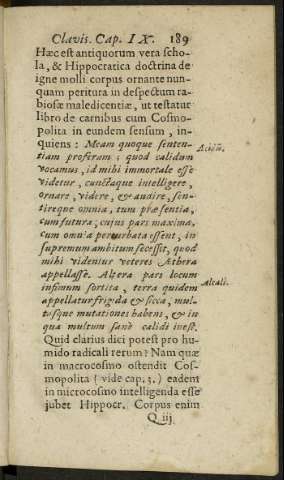 Clavis. Cap. IX. 189
Hæc est antiquorum vera scho-
la, & Hippocratica doctrina de
igne molli corpus ornante nun-
quam peritura in despectum ra-
biosæ maledicentiæ, ut testatur
libro de carnibus cum Cosmo-
polita in eundem sensum, in-
quiens: Meam quoque senten-
tiam proferam: quod calidum
vocamus, id mihi immortale esse
videtur, cunctaque intelligere,
ornare, videre, & audire, sen-
tireque omnia, tum præsentia,
cum futura, cujus pars maxima,
cum omnia perturbata essent, in
supremum ambitum secessit, quod
mihi videntur veteres Æthera
appellasse. Altera pars locum
infimum sortita, terra quidem
appellatur frigida & sicca, mul-
tosque mutationes habens, & in
qua multum sanè calidi inest.
Quid clarius dici potest pro hu-
mido radicali rerum? Nam quæ
in macrocosmo ostendit Cos-
mopolita (vide cap. 3.) eadem
in microcosmo intelligenda esse
jubet Hippocr. Corpus enim
Q iij
Alcali.